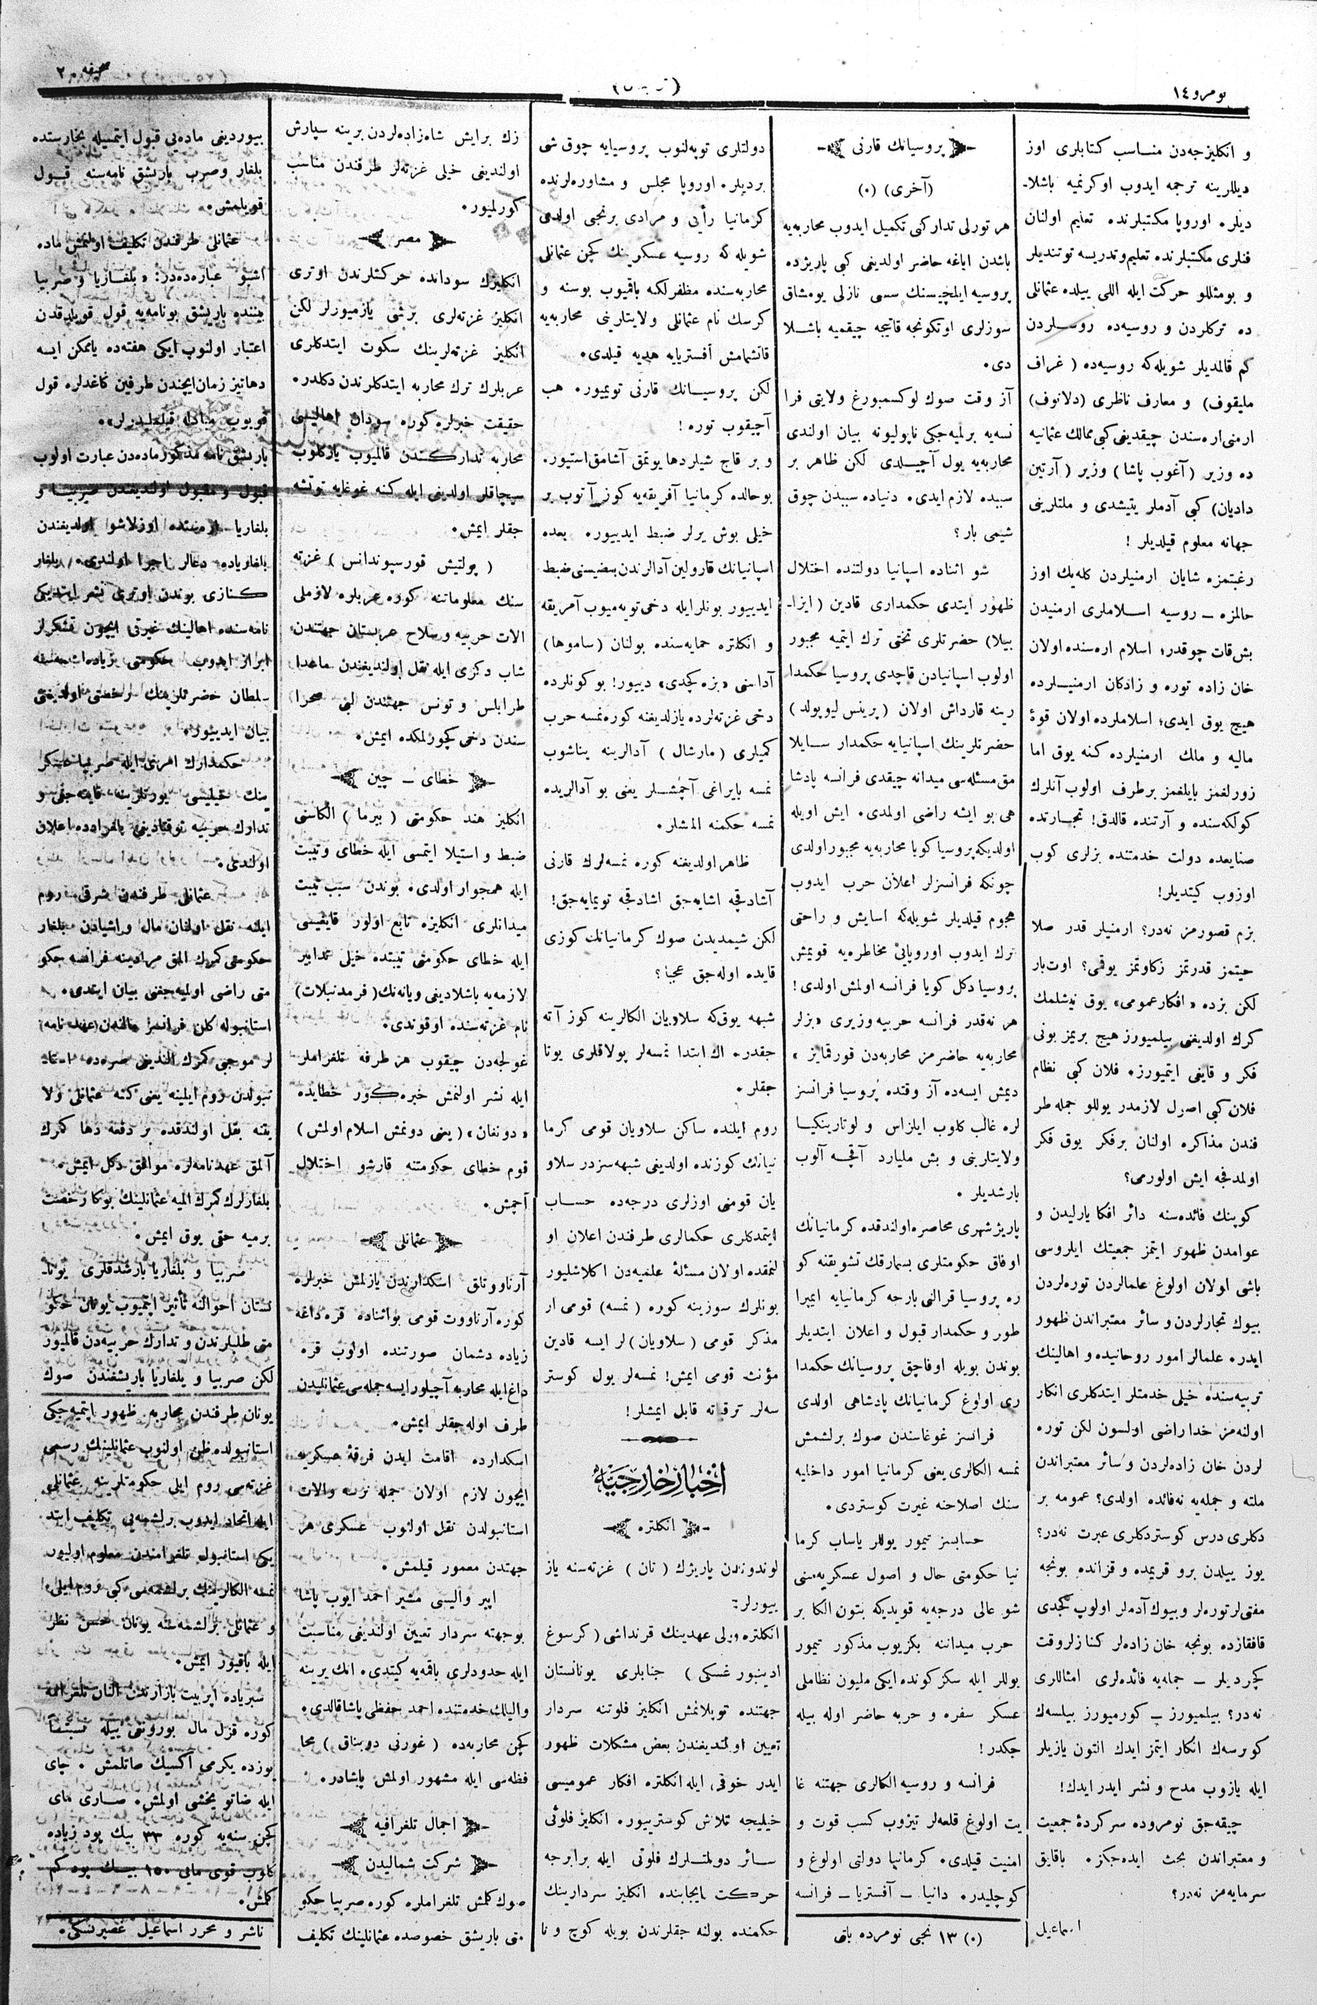 نومرو ١٤
صحيفه ٢
و انكليزجه‌دن مناسب كتابلرى اوز
ديللرينه ترجمه ايدوب اوكرنميه باشلا-
ديلر. اوروپا مكتبلرنده تعليم اولنان
فنلرى مكتبلرنده تعليم و تدريسه توتنديلر
و بومثللو حركت ايله اللى ييلده عثمانلى
ده تركلردن و روسيه‌ده روسلردن
كم قالمديلر شويله‌كه روسيه‌ده (غراف
مليقوف) و معارف ناظرى (دلانوف)
ارمنى اره‌سندن چيقدينى كبى ممالك عثمانيه
ده وزير (آغوب پاشا) وزير (آرتين
داديان) كبى آدملر يتيشدى و ملتلرينى
جهانه معلوم قيلديلر!
رغبتمزه شايان ارمنيلردن كله‌يك اوز
حالمزه – روسيه اسلاملرى ارمنيدن
بش قات چوقدر؛ اسلام اره‌سنده اولان
خان زاده توره و زادكان ارمنيلرده
هيچ يوق ايدى؛ اسلاملرده اولان قوۀ
ماليه و ملك ارمنيلرده كنه يوق اما
زورلغمز بايلغمز برطرف اولوب آنلرك
كولكه‌سنده و آرتنده قالدق! تجارتده
صنايعده دولت خدمتنده بزلرى كوب
اوزوب كيتديلر!
بزم قصورمز نه‌در؟ ارمنيلر قدر صلا
حيتمز قدرتمز زكاوتمز يوقمى؟ اوت بار
لكن بزده «افكار عمومى» يوق نيشلمك
كرك اولديغنى بيلميورز هيچ بريمز بونى
فكر و قايغى ايتميورز. فلان كبى نظام
فلان كبى اصول لازمدر يوللو جمله طر
فندن مذاكره اولنان برفكر يوق فكر
اولمدقجه ايش اولورمى؟
كوپنك فائده‌سنه دائر افكار يارليدن و
عوامدن ظهور ايتمز جمعيتك ايلروسى
باشى اولان اولوغ علمالردن توره‌لردن
بيوك تجارلردن و سائر معتبراندن ظهور
ايدر. علمالر امور روحانيده و اهالينك
تربيه‌سنده خيلى خدمتلر ايتدكلرى انكار
اولنه‌مز خدا راضى اولسون لكن توره
لردن خان زاده‌لردن و سائر معتبراندن
ملته و جمله‌يه نه فائده اولدى؟ عمومه بر
دكلرى درس كوستردكلرى عبرت نه‌در؟
يوز ييلدن برو قريمده و قزانده بونجه
مفتى‌لر توره‌لر و بيوك آدملر اولوب كچدى
قافقازده بونجه خان زاده‌لر كنازلر وقت
كچرديلر – جمله‌يه فائده‌لرى امثاللرى
نه‌در؟ بيلميورز – كورميورز بيلسه‌ك
كورسه‌ك انكار ايتمز ايدك التون يازيلر
ايله يازوب مدح و نشر ايدر ايدك!
چيقه‌جق نومروده سركردۀ جمعيت
و معتبراندن بحث ايده‌جكز. باقايق
سرمايه‌مز نه‌در؟
اسماعيل
پروسيانك قارنى
(آخرى) (٠)
هر تورلى تداركى تكميل ايدوب محاربه‌يه
باشدن اياغه حاضر اولديغى كبى پاريزده
پروسيه ايلچيسنك سسى نازلى يومشاق
سوزلرى اوتكونجه قاتيجه چيقميه باشلا
دى.
آز وقت صوك لوكسمبورغ ولايتى فرا
نسه‌يه برلميه‌جكى ناپوليونه بيان اولندى
محاربه‌يه يول آچيلدى لكن ظاهر بر
سببده لازم ايدى. دنياده سببدن چوق
شيمى بار؟
شو اثناده اسپانيا دولتنده اختلال
ظهور ايتدى حكمدارى قادين (ايزا-
بيلا) حضرتلرى تختى ترك ايتميه مجبور
اولوب اسپانيادن قاچدى پروسيا حكمدا
رينه قارداش اولان (پرينس ليوپولد)
حضرتلرينك اسپانيايه حكمدار سايلا
مق مسئله‌سى ميدانه چيقدى فرانسه پادشا
هى بو ايشه راضى اولمدى. ايش اويله
اولديكه پروسيا كويا محاربه‌يه مجبور اولدى
چونكه فرانسزلر اعلان حرب ايدوب
هجوم قيلديلر شويله‌كه اسايش و راحتى
ترك ايدوب اوروپايى مخاطره‌يه قويمش
پروسيا دكل كويا فرانسه اولمش اولدى!
هر نه‌قدر فرانسه حربيه وزيرى «بزلر
محاربه‌يه حاضرمز محاربه‌دن قورقمايز»
ديمش ايسه‌ده آز وقتده پروسيا فرانسز
لره غالب كلوب ايلزاس و لوتارينكيا
ولايتلرينى و بش مليارد آقچه آلوب
بارشديلر.
پاريز شهرى محاصره اولندقده كرمانيانك
اوفاق حكومتلرى بسمارقك تشويقنه كو
ره پروسيا قرالنى بارجه كرمانيايه ايمپرا
طور و حكمدار قبول و اعلان ايتديلر
بوندن بويله اوفاجق پروسيانك حكمدا
رى اولوغ كرمانيانك پادشاهى اولدى
فرانسز غوغاسندن صوك برلشمش
نمسه الكالرى يعنى كرمانيا امور داخليه
سنك اصلاحنه غيرت كوستردى.
حسابسز تيمور يوللر ياساب كرما
نيا حكومتى حال و اصول عسكريه‌سنى
شو عالى درجه‌يه قويديكه بتون الكا بر
حرب ميداننه بكزيوب مذكور تيمور
يوللر ايله سكز كونده ايكى مليون نظاملى
عسكر سفره و حربه حاضر اوله بيله
جكدر!
فرانسه و روسيه الكالرى جهتنه غا
يت اولوغ قلعه‌لر تيزوب كسب قوت و
امنيت قيلدى. كرمانيا دولتى اولوغ و
كوچليدر. دانيا – آفستريا – فرانسه
(٠) ١٣ نجى نومروده باق
دولتلرى توپه‌لنوب پروسيايه چوق شى
برديلر. اوروپا مجلس و مشاوره‌لرنده
كرمانيا رأيى و مرادى برنجى اولدى
شويله‌كه روسيه عسكرينك كچن عثمانلى
محاربه‌سنده مظفرلكنه باقميوب بوسنه و
كرسك نام عثمانلى ولايتلرينى محاربه‌يه
قاتشمامش آفستريايه هديه قيلدى.
لكن پروسيانك قارنى تويميور. هب
آچيقوب توره!
و بر قاچ شيلردها يوتمق آشامق استيور.
بوحالده كرمانيا آفريقه‌يه كوز آتوب بر
خيلى بوش يرلر ضبط ايدييور. بعده
اسپانيانك قارولين آدالرندن بعضيسنى ضبط
ايدييور بونلر ايله دخى تويه‌ميوب آمريقه
و انكلتره حمايه‌سنده بولنان (ساموها)
آداسنى «بزه كچدى» دييور! بو كونلرده
دخى غزته‌لرده يازلديغنه كوره نمسه حرب
كميلرى (مارشال) آدالرينه يناشوب
نمسه بايراغى آچمشلر يعنى بو آدالريده
نمسه حكمنه المشلر.
ظاهر اولديغنه كوره نمسه‌لرك قارنى
آشادقچه اشايه‌جق اشادقجه تويمايه‌جق!
لكن شيمديدن صوك كرمانيانك كوزى
قايده اوله‌جق عجبا؟
شبهه يوق‌كه سلاويان الكالرينه كوز آته
جقدر. اك ابتدا نمسه‌لر پولاقلرى يوتا
جقلر.
روم ايلنده ساكن سلاويان قومى كرما
نيانك كوزنده اولديغى شبهه‌سزدر سلاو
يان قومنى اوزلرى درجه‌ده حساب
ايتمدكلرى حكمالرى طرفندن اعلان او
لنمقده اولان مسئلۀ علميه‌دن اكلاشليور
بونلرك سوزينه كوره (نمسه) قومى ار
مذكر قومى (سلاويان) لر ايسه قادين
مؤنث قومى ايمش! نمسه‌لر يول كوستر
سه‌لر ترقياته قابل ايمشلر!
اخبار خارجيه
انكلتره
لوندوندن پاريزك (تان) غزته‌سنه ياز
ييورلر:
انكلتره ولى عهدينك قرنداشى (كرسوغ
ادينبورغسكى) جنابلرى يونانستان
جهتنده توپلانمش انكليز فلوتنه سردار
تعيين اولنديغندن بعض مشكلات ظهور
ايدر خوفى ايله انكلتره افكار عموميسى
خيليجه تلاش كوسترييور. انكليز فلوتى
سائر دولتلرك فلوتى ايله برابرجه
حركت ايجابنده انكليز سردارينك
حكمنده بولنه جقلرندن بويله كوچ و نا
زك برايش شاه‌زاده‌لردن برينه سپارش
اولنديغى خيلى غزته‌لر طرفندن مناسب
كورلميور.
مصر
انكليزك سودانده حركتلرندن اوترى
انكليز غزته‌لرى برشى يازميورلر لكن
انكليز غزته‌لرينك سكوت ايتدكلرى
عربلرك ترك محاربه ايتدكلرندن دكلدر.
حقيقت خبرلره كوره سودان اهاليسى
محاربه تداركندن قالميوب يازكلوب
سيجاقلر اولديغى ايله كنه غوغايه توتشه
جقلر ايمش.
(پولتيش قورسپوندانس) غزته
سنك معلوماتنه كوره عربلره لازملى
الات حربيه و سلاح عربستان جهتندن
شاب دكزى ايله نقل اولنديغندن ماعدا
طرابلس و تونس جهتندن لبى صحرا
سندن دخى كچورلمكده ايمش.
خطاى – چين
انكليز هند حكومتى (بيرما) الكاسنى
ضبط و استيلا ايتمسى ايله خطاى و تيبت
ايله همجوار اولدى. بوندن سبب تيبت
ميدانلرى انكليزه تابع اولور قايغيسى
ايله خطاى حكومتى تيبتده خيلى تدابير
لازمه‌يه باشلاديغى ويانه‌نك (فرمدنبلات)
نام غزته‌سنده اوقوندى.
غولجه‌دن چيقوب هر طرفه تلغراملر
ايله نشر اولنمش خبره‌كور خطايده
«دونغان» (يعنى دونمش اسلام اولمش)
قوم خطاى حكومتنه قارشو اختلال
آچمش.
عثمانلى
آرناووتلق اسكدارندن يازلمش خبرلره
كوره آرناووت قومى بواثناده قره‌داغه
زياده دشمان صورتنده اولوب قره
داغ ايله محاربه آچيلور ايسه جمله‌سى عثمانليدن
طرف اوله جقلر ايمش.
اسكدارده اقامت ايدن فرقۀ عسكريه
ايچون لازم اولان جمله نرسه و الات
استانبولدن نقل اولنوب عسكرى هر
جهتدن معمور قيلمش.
ايپر واليسى مشير احمد ايوب پاشا
بوجهته سردار تعيين اولنديغى مناسبت
ايله حدودلرى باقميه كيتدى. انك يرينه
واليلك خدمتنده احمد حفظى پاشا قالدى.
كچن محاربه‌ده (غورنى دوبناق) محا
فظه‌سى ايله مشهور اولمش پاشادر.
اجمال تلغرافيه
شركت شماليدن
صوك كلمش تلغراملره كوره صربيا حكو
متى باريشق خصوصده عثمانلينك تكليف
بيورديغى ماده‌يى قبول ايتمسيله بخارستده
بلغار و صرب باريشق نامه‌سنه قول
قويلمش.
عثمانلى طرفندن تكليف اولنمش ماده
اشبو عبارده‌در: «بلغاريا و صربيا
بيننده باريشق بونامه‌يه قول قويلدقدن
اعتبار اولنوب ايكى هفته‌ده ياتمكن ايسه
دهاتيز زمان ايچندن طرفين كاغدلره قول
قويوب مبادله قيله‌ليدرلر».
باريشق نامه مذكور ماده‌دن عبارت اولوب
قبول و مقبول اولنديغندن صربيا و
بلغاريا ارمنده اوزلاشو اولديغندن
بلغارياده دعالر اجرا اولندى. بلغار
كنازى بوندن اوترى نشر ايتديكى
نامه‌سنده اهالينك غيرتى ايچون تشكرلر
ابراز ايدوب
سلطان حضرتلرينك رخصتى اولديغنى
بيان ايدييور.
حكمدارك امرى ايله صربيا عسكر
ينك
تدارك حربيه توقتاديغى بلغرادده اعلان
اولندى.
عثمانلى طرفندن شرقى روم
ايلنه نقل اولنان مال و اشيادن بلغار
حكومتى كمرك المق مرادينه فرانسه حكو
متى راضى اولميه‌جغنى بيان ايتدى.
استانبوله كلن فرانسز مالندن عهدنامه
لر موجبى كمرك النديغى صره‌ده استا-
نبولدن روم ايلينه يعنى كنه عثمانلى ولا
يتنه نقل اولندقده بر دفعه دها كمرك
آلمق عهدنامه‌لره موافق دكل ايمش.
بلغارلرك كمرك الميه عثمانلينك بوكا رخصت
برميه حقى يوق ايمش.
صربيا و بلغاريا بارشدقلرى يونا-
نستان احوالنه تأثير ايتميوب يونان حكو
متى طلبلرندن و تدارك حربيه‌دن قالميور
لكن صربيا و بلغاريا باريشغندن صوك
يونان طرفندن محاربه ظهور ايتميه‌جكى
استانبولده ظن اولنوب عثمانلينك رسمى
غزته‌سى روم ايلى حكومتلرينه عثمانلى
ايله اتحاد ايدوب برلشمه‌يى تكليف ايتد
يكى استانبول تلغرامندن معلوم اوليور.
نمسه الكالرينك برلشمه‌سى كبى روم ايلى
و عثمانلى برلشمه‌سنه يونان حسن نظر
ايله باقيور ايمش.
سبرياده ايربيت بازارندن النان تلغرامه
كوره قزل مال يورونتى بيله
يوزده يكرمى اكسيك صاتلمش. چاى
ايله صاتو يخشى اولمش. صارى ماى
كچن سنه‌يه كوره ٣٣ بيك پود زياده
كلوب قوى مايى ١٥٠ بيك پود كم
كلمش.
ناشر و محرر اسماعيل غصپرنسكى.